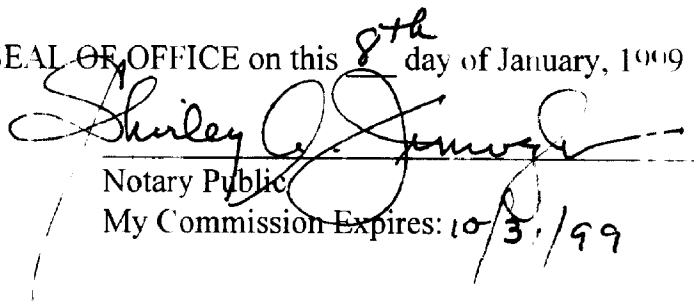 SEAL OF OFFICE on this 8th day of January, 1999
Shirley A.
Notary Public
My Commission Expires: 10/31/99